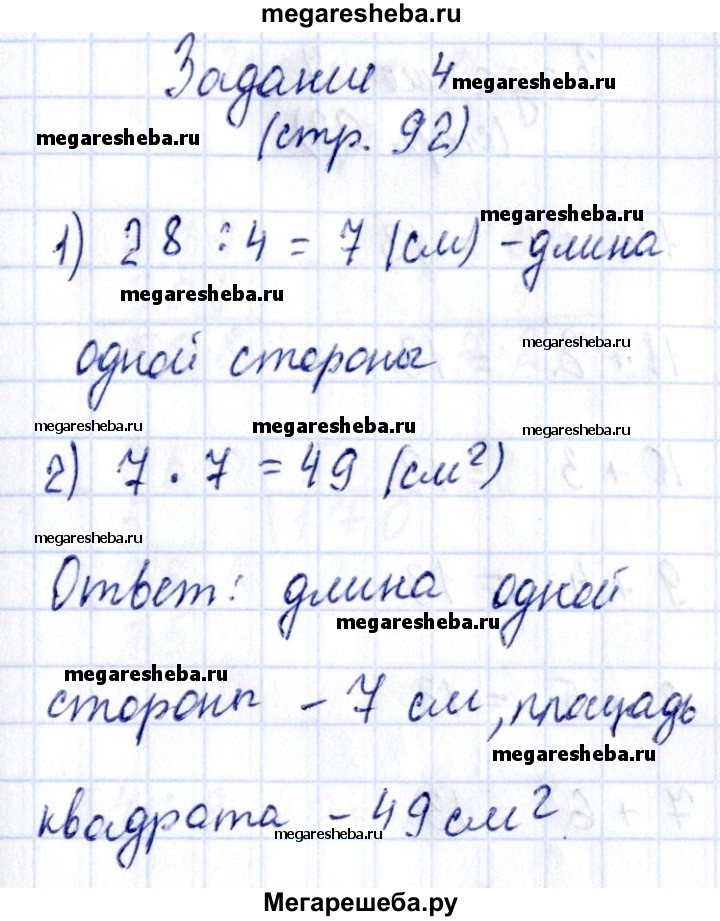 megaresheba.ru
Задание 4 megaresheba.ru
megaresheba.ru (стр. 92)
megaresheba.ru
1) 28 : 4 = 7 (см) - длина
megaresheba.ru
megaresheba.ru
одной стороны
megaresheba.ru megaresheba.ru megaresheba.ru
2) 7 · 7 = 49 (см²)
megaresheba.ru
Ответ: длина одной
megaresheba.ru
megaresheba.ru
стороны - 7 см, площадь
megaresheba.ru
квадрата - 49 см²
megaresheba.ru
Мегарешеба.ру